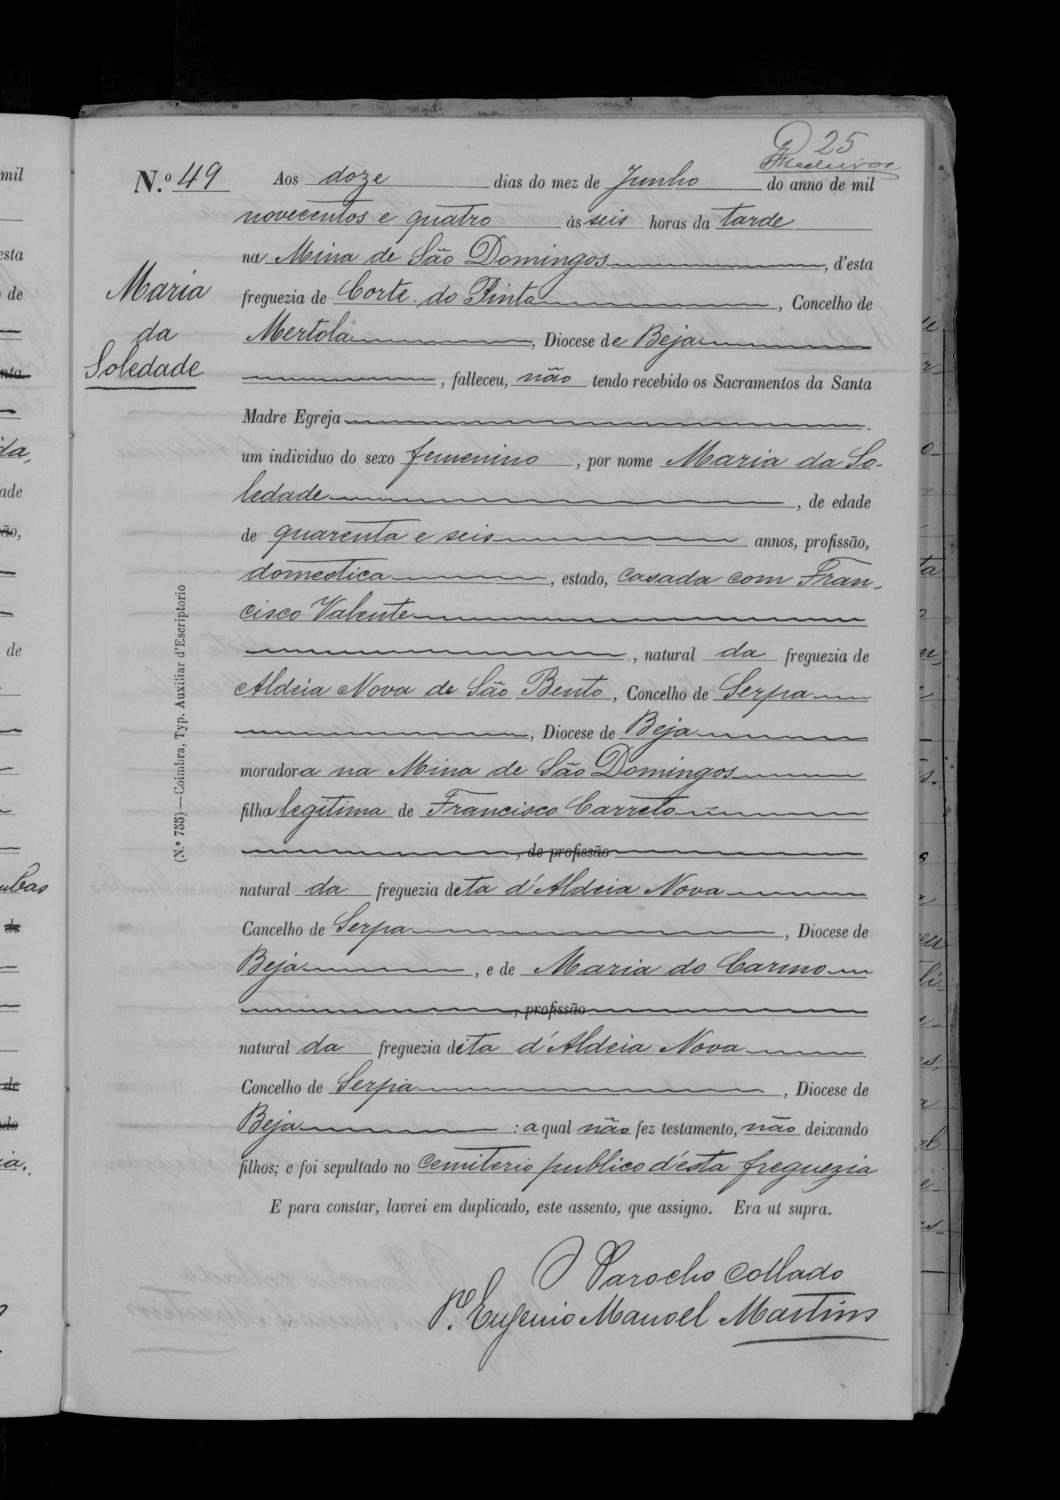 25
Medeiros
N.º 49 Aos doze dias do mez de Junho do anno de mil
novecentos e quatro ás seis horas da tarde
na Mina de São Domingos, d'esta
freguezia de Corte do Pinto, Concelho de
Mertola, Diocese de Beja
, falleceu, não tendo recebido os Sacramentos da Santa
Madre Egreja.
um individuo do sexo femenino, por nome Maria da So-
ledade, de edade
de quarenta e seis annos, profissão,
domestica, estado, casada com Fran-
cisco Valente
, natural da freguezia de
Aldeia Nova de São Bento, Concelho de Serpa
, Diocese de Beja
moradora na Mina de São Domingos
filha legitima de Francisco Carreto
, de profissão
natural da freguezia deta d'Aldeia Nova
Cancelho de Serpa, Diocese de
Beja, e de Maria do Carmo
, profissão
natural da freguezia deita d'Aldeia Nova
Concelho de Serpa, Diocese de
Beja : a qual não fez testamento, não deixando
filhos; e foi sepultado no cemiterio publico d'esta freguezia
E para constar, lavrei em duplicado, este assento, que assigno. Era ut supra.
O Parocho collado
P.e Eugenio Manoel Martins
Maria
da
Soledade
(N.º 733)—Coimbra, Typ. Auxiliar d'Escriptorio
mil
esta
de
nta
da,
ade
ão,
de
de
de
ia.